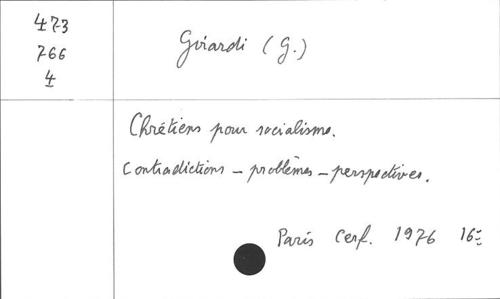 473
766
4
Girardi (G.)
Chrétiens pour socialisme.
Contradictions - problèmes - perspectives.
Paris Cerf. 1976 16º